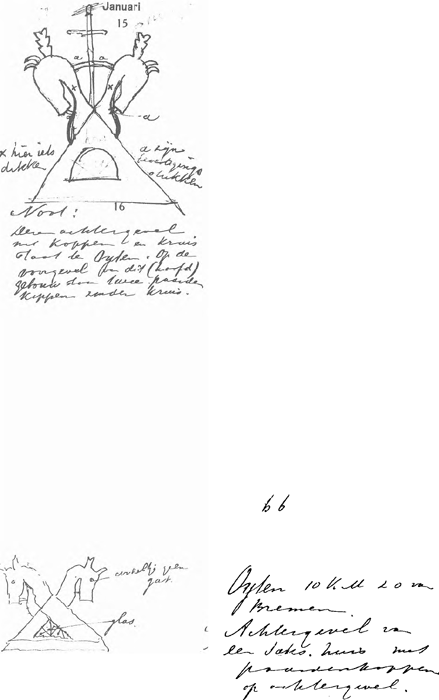 Januari
15
a a
x x
a
x hier iets
dikker
a zijn
bevestigings
stukken
16
Noot:
Deze achtergevel
met koppen en kruis
staat te Oyten. Op de
voorgevel van dit (hoofd)
gebouw staan twee paarden
koppen zonder kruis.
enkelzijdig
gat
glas
66
Oyten 10 K.M z.o van
Bremen.
Achtergevel van
een Saks. huis met
paardenkoppen
op achtergevel.